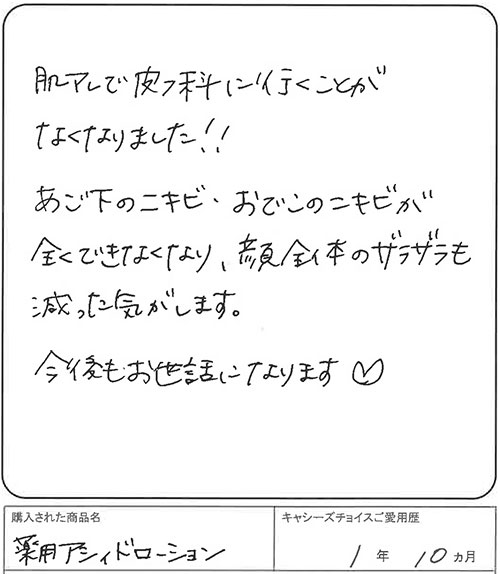 肌アレで皮フ科に行くことが
なくなりました!!
あご下のニキビ・おでこのニキビが
全くできなくなり、顔全体のザラザラも
減った気がします。
今後もお世話になります♡
購入された商品名
キャシーズチョイスご愛用歴
薬用アシィドローション
1年10ヵ月